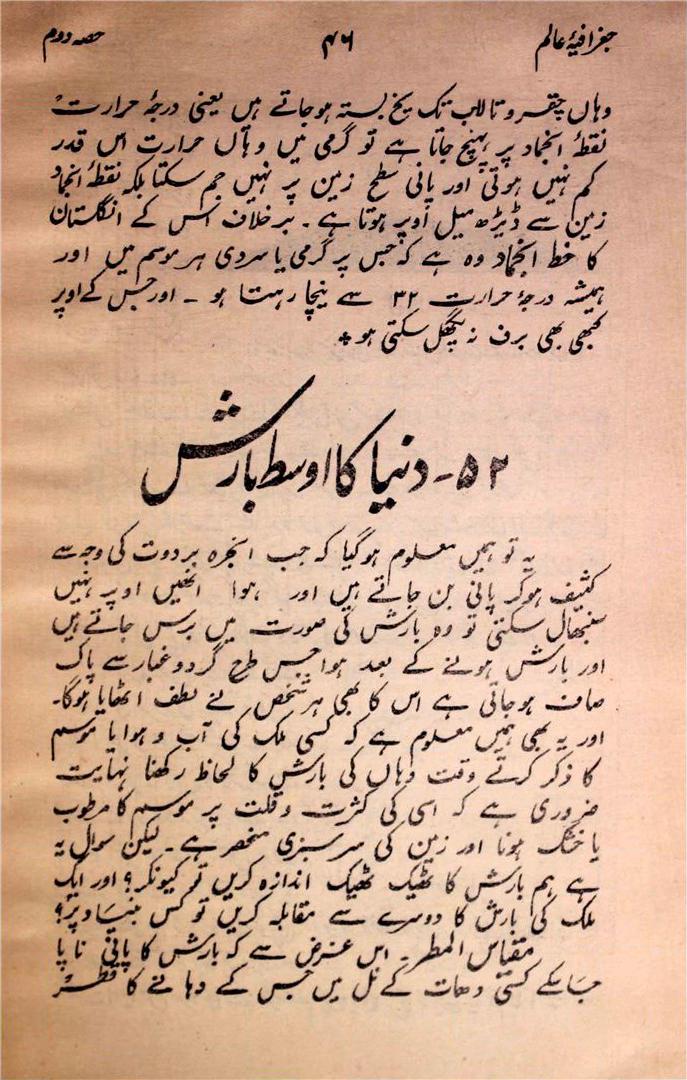 جغرافیۂ عالم ۴۶ حصہ دوم
وہاں چقسر و تالاب تک یخ بستہ ہوجاتے ہیں یعنی درجۂ حرارت
نقطۂ انجماد پر پہنچ جاتا ہے تو گرمی میں وہاں حرارت اس قدر
کم نہیں ہوتی اور پانی سطح زمین پر نہیں جم سکتا بلکہ نقطۂ انجماد
زمین سے ڈیڑھ میل اوپر ہوتا ہے ۔ برخلاف اس کے انگلستان
کا خط انجماد وہ ہے کہ جس پر گرمی یا سردی ہر موسم میں اور
ہمیشہ درجۂ حرارت ۳۲ سے نیچا رہتا ہو ۔ اور جس کے اوپر
کبھی بھی برف نہ پگھل سکتی ہو *
۵۲ ۔ دنیا کا اوسط بارش
یہ تو ہمیں معلوم ہوگیا کہ جب ابخرہ بردوت کی وجہ سے
کثیف ہوکر پانی بن جاتے ہیں اور ہوا انھیں اوپر نہیں
سنبھال سکتی تو وہ بارش کی صورت میں برس جاتے ہیں
اور بارش ہونے کے بعد ہوا جس طرح گرد و غبار سے پاک
صاف ہوجاتی ہے اس کا بھی ہر شخص نے لطف اٹھایا ہوگا۔
اور یہ بھی ہمیں معلوم ہے کہ کسی ملک کی آب و ہوا یا موسم
کا ذکر کرتے وقت وہاں کی بارش کا لحاظ رکھنا نہایت
ضروری ہے کہ اسی کی کثرت و قلت پر موسم کا مرطوب
یا خشک ہونا اور زمین کی سرسبزی منحصر ہے ۔ لیکن سوال یہ
ہے ہم بارش کا ٹھیک ٹھیک اندازہ کریں تو کیونکر؟ اور ایک
ملک کی بارش کا دوسرے سے مقابلہ کریں تو کس بنیاد پر؟
مقیاس المطر ۔ اس غرض سے کہ بارش کا پانی ناپا
جاسکے کسی دھات کے نل میں جس کے دہانے کا قطر